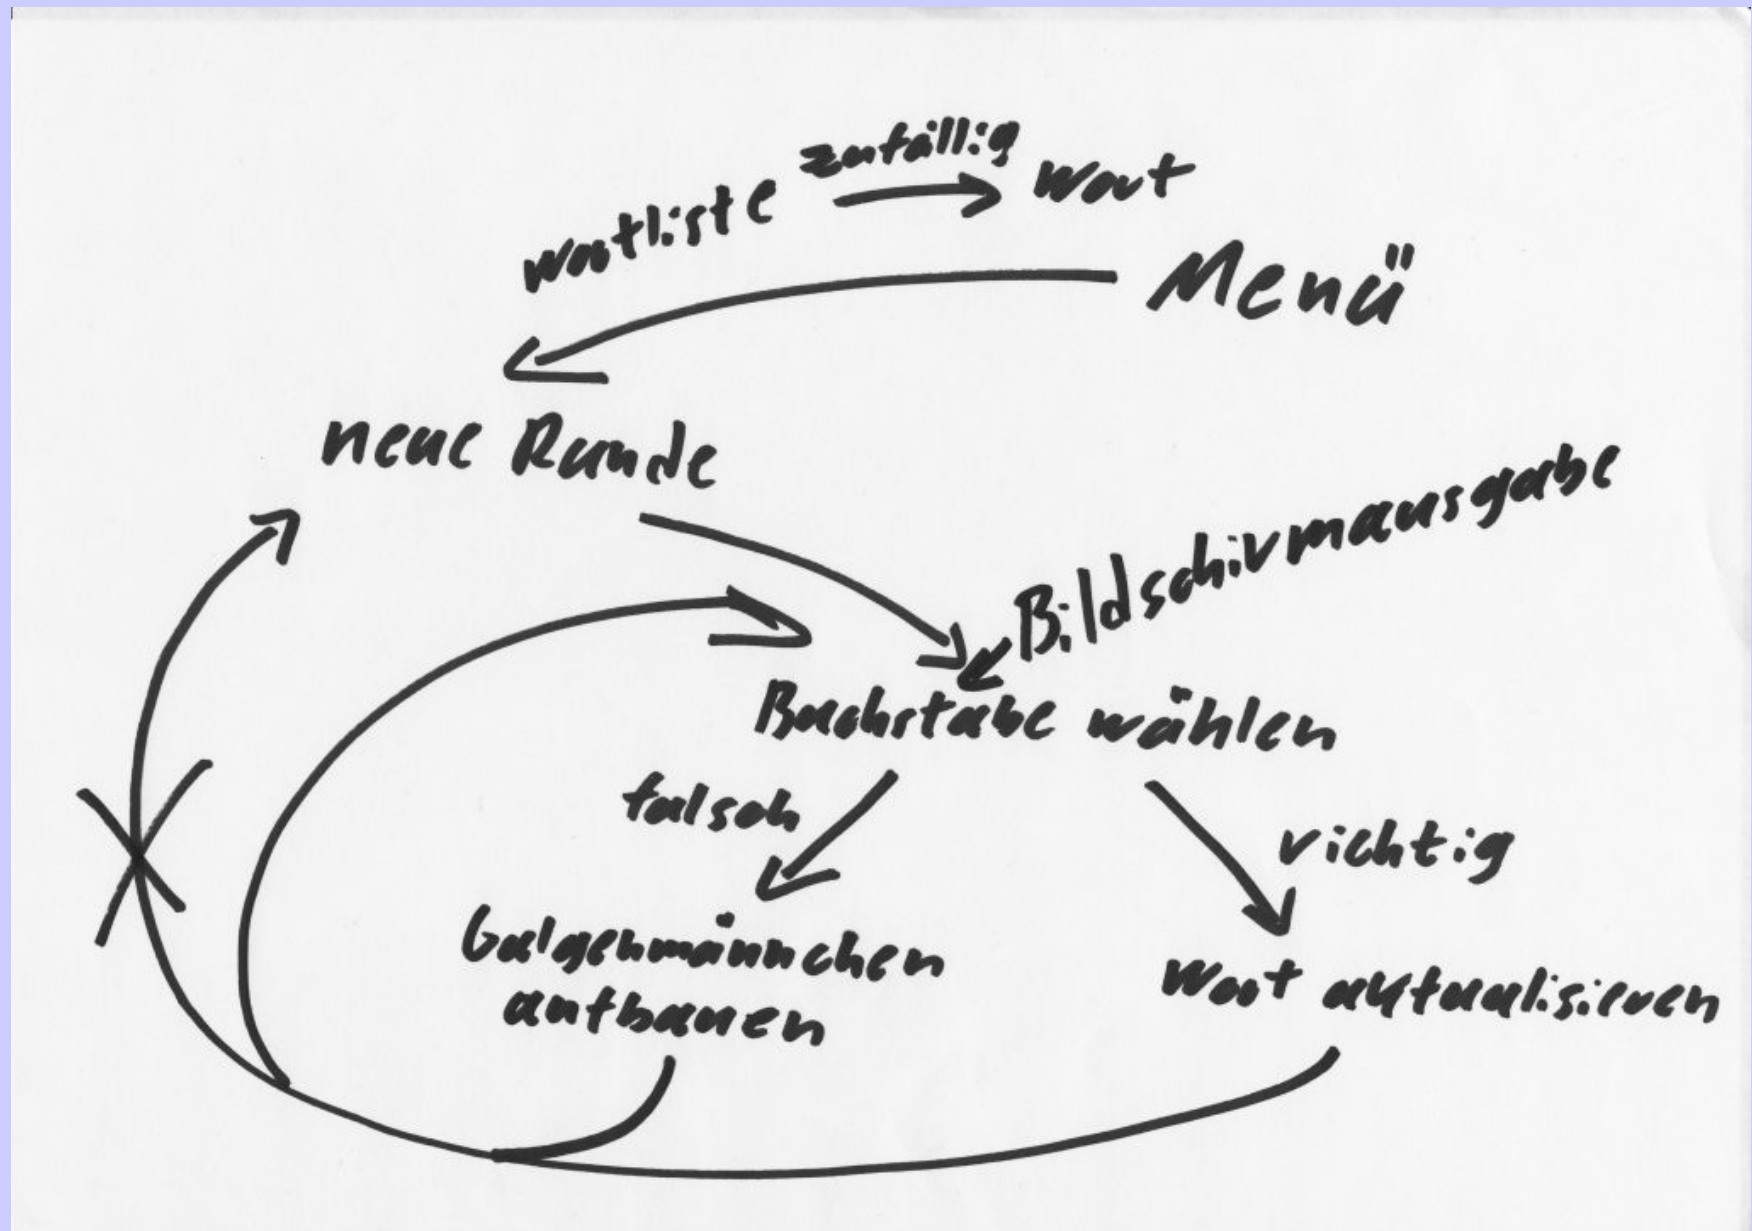 zufällig
Wortliste → Wort
Menü
neue Runde
Bildschirmausgabe
Buchstabe wählen
falsch
richtig
Galgenmännchen
aufbauen
Wort aktualisieren